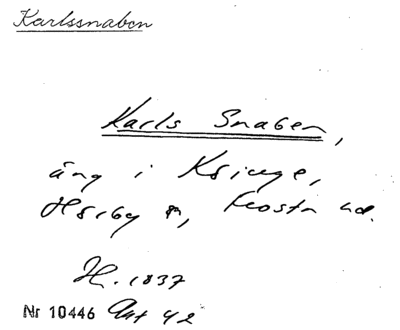 Karlssnaben
Karls Snaben,
äng i Kringe,
Hörby sn, Frosta hd.
H. 1837
Nr 10446 Akt 42